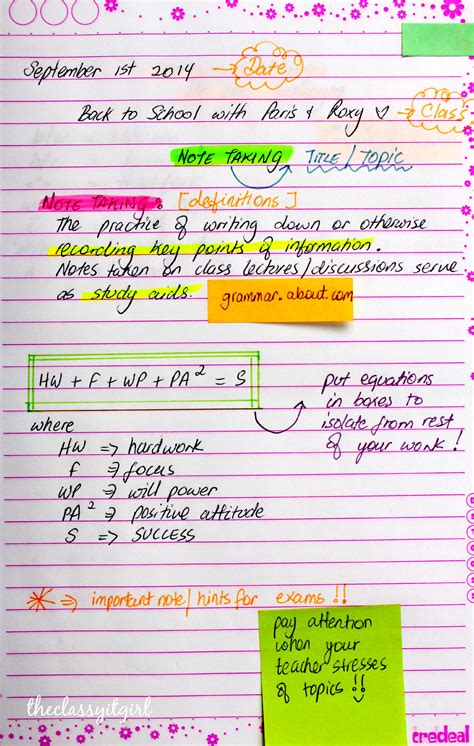 September 1st 2014 → Date
Back to School with Paris & Roxy ♡ → Class
NOTE TAKING → TITLE / TOPIC
NOTE TAKING: [definitions]
The practice of writing down or otherwise
recording key points of information.
Notes taken on class lectures/discussions serve
as study aids.
grammar.about.com
HW + F + WP + PA² = S
put equations
in boxes to
isolate from rest
of your work!
where
HW => hardwork
F => focus
WP => will power
PA² => positive attitude
S => SUCCESS
* => important note/hints for exams!!
pay attention
when your
teacher stresses
of topics!!
theclassyitgirl
credeal